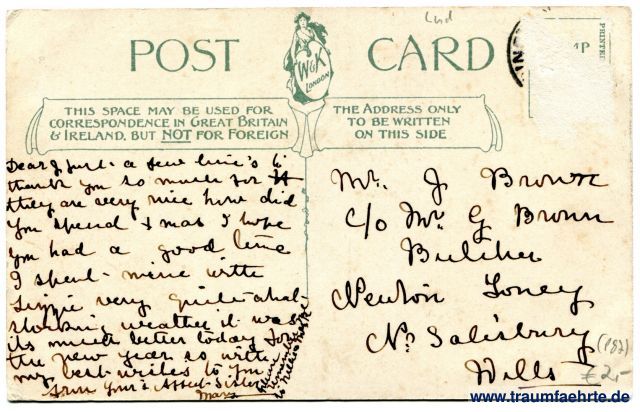 POST CARD
W&K
LONDON
PRINTE
THIS SPACE MAY BE USED FOR
CORRESPONDENCE IN GREAT BRITAIN
& IRELAND, BUT NOT FOR FOREIGN
THE ADDRESS ONLY
TO BE WRITTEN
ON THIS SIDE
Dear J just a few line's to
thank you so much for
they are very nice how did
you spend Xmas I hope
you had a good time
I spent mine with
Lizzie very quiet what
shocking weather it was
its much better today for
the new year so with
my best wishes to you
from your's Affect Sister
Mr. J Brown
C/o Mr G Brown
Butcher
Newton Toney
Nr Salisbury
Wilts
(P82)
£2-
www.traumfaehrte.de